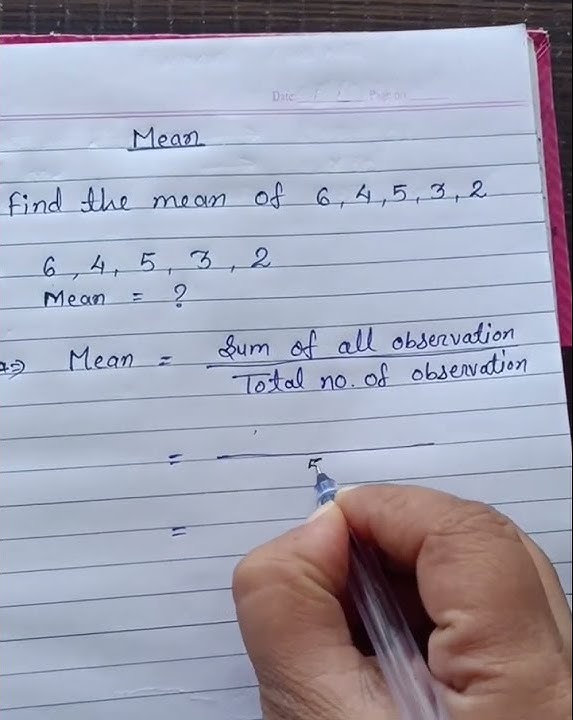 Date / / Page no.
Mean
Find the mean of 6, 4, 5, 3, 2
6, 4, 5, 3, 2
Mean = ?
Mean = Sum of all observation
Total no. of observation
=
5
=